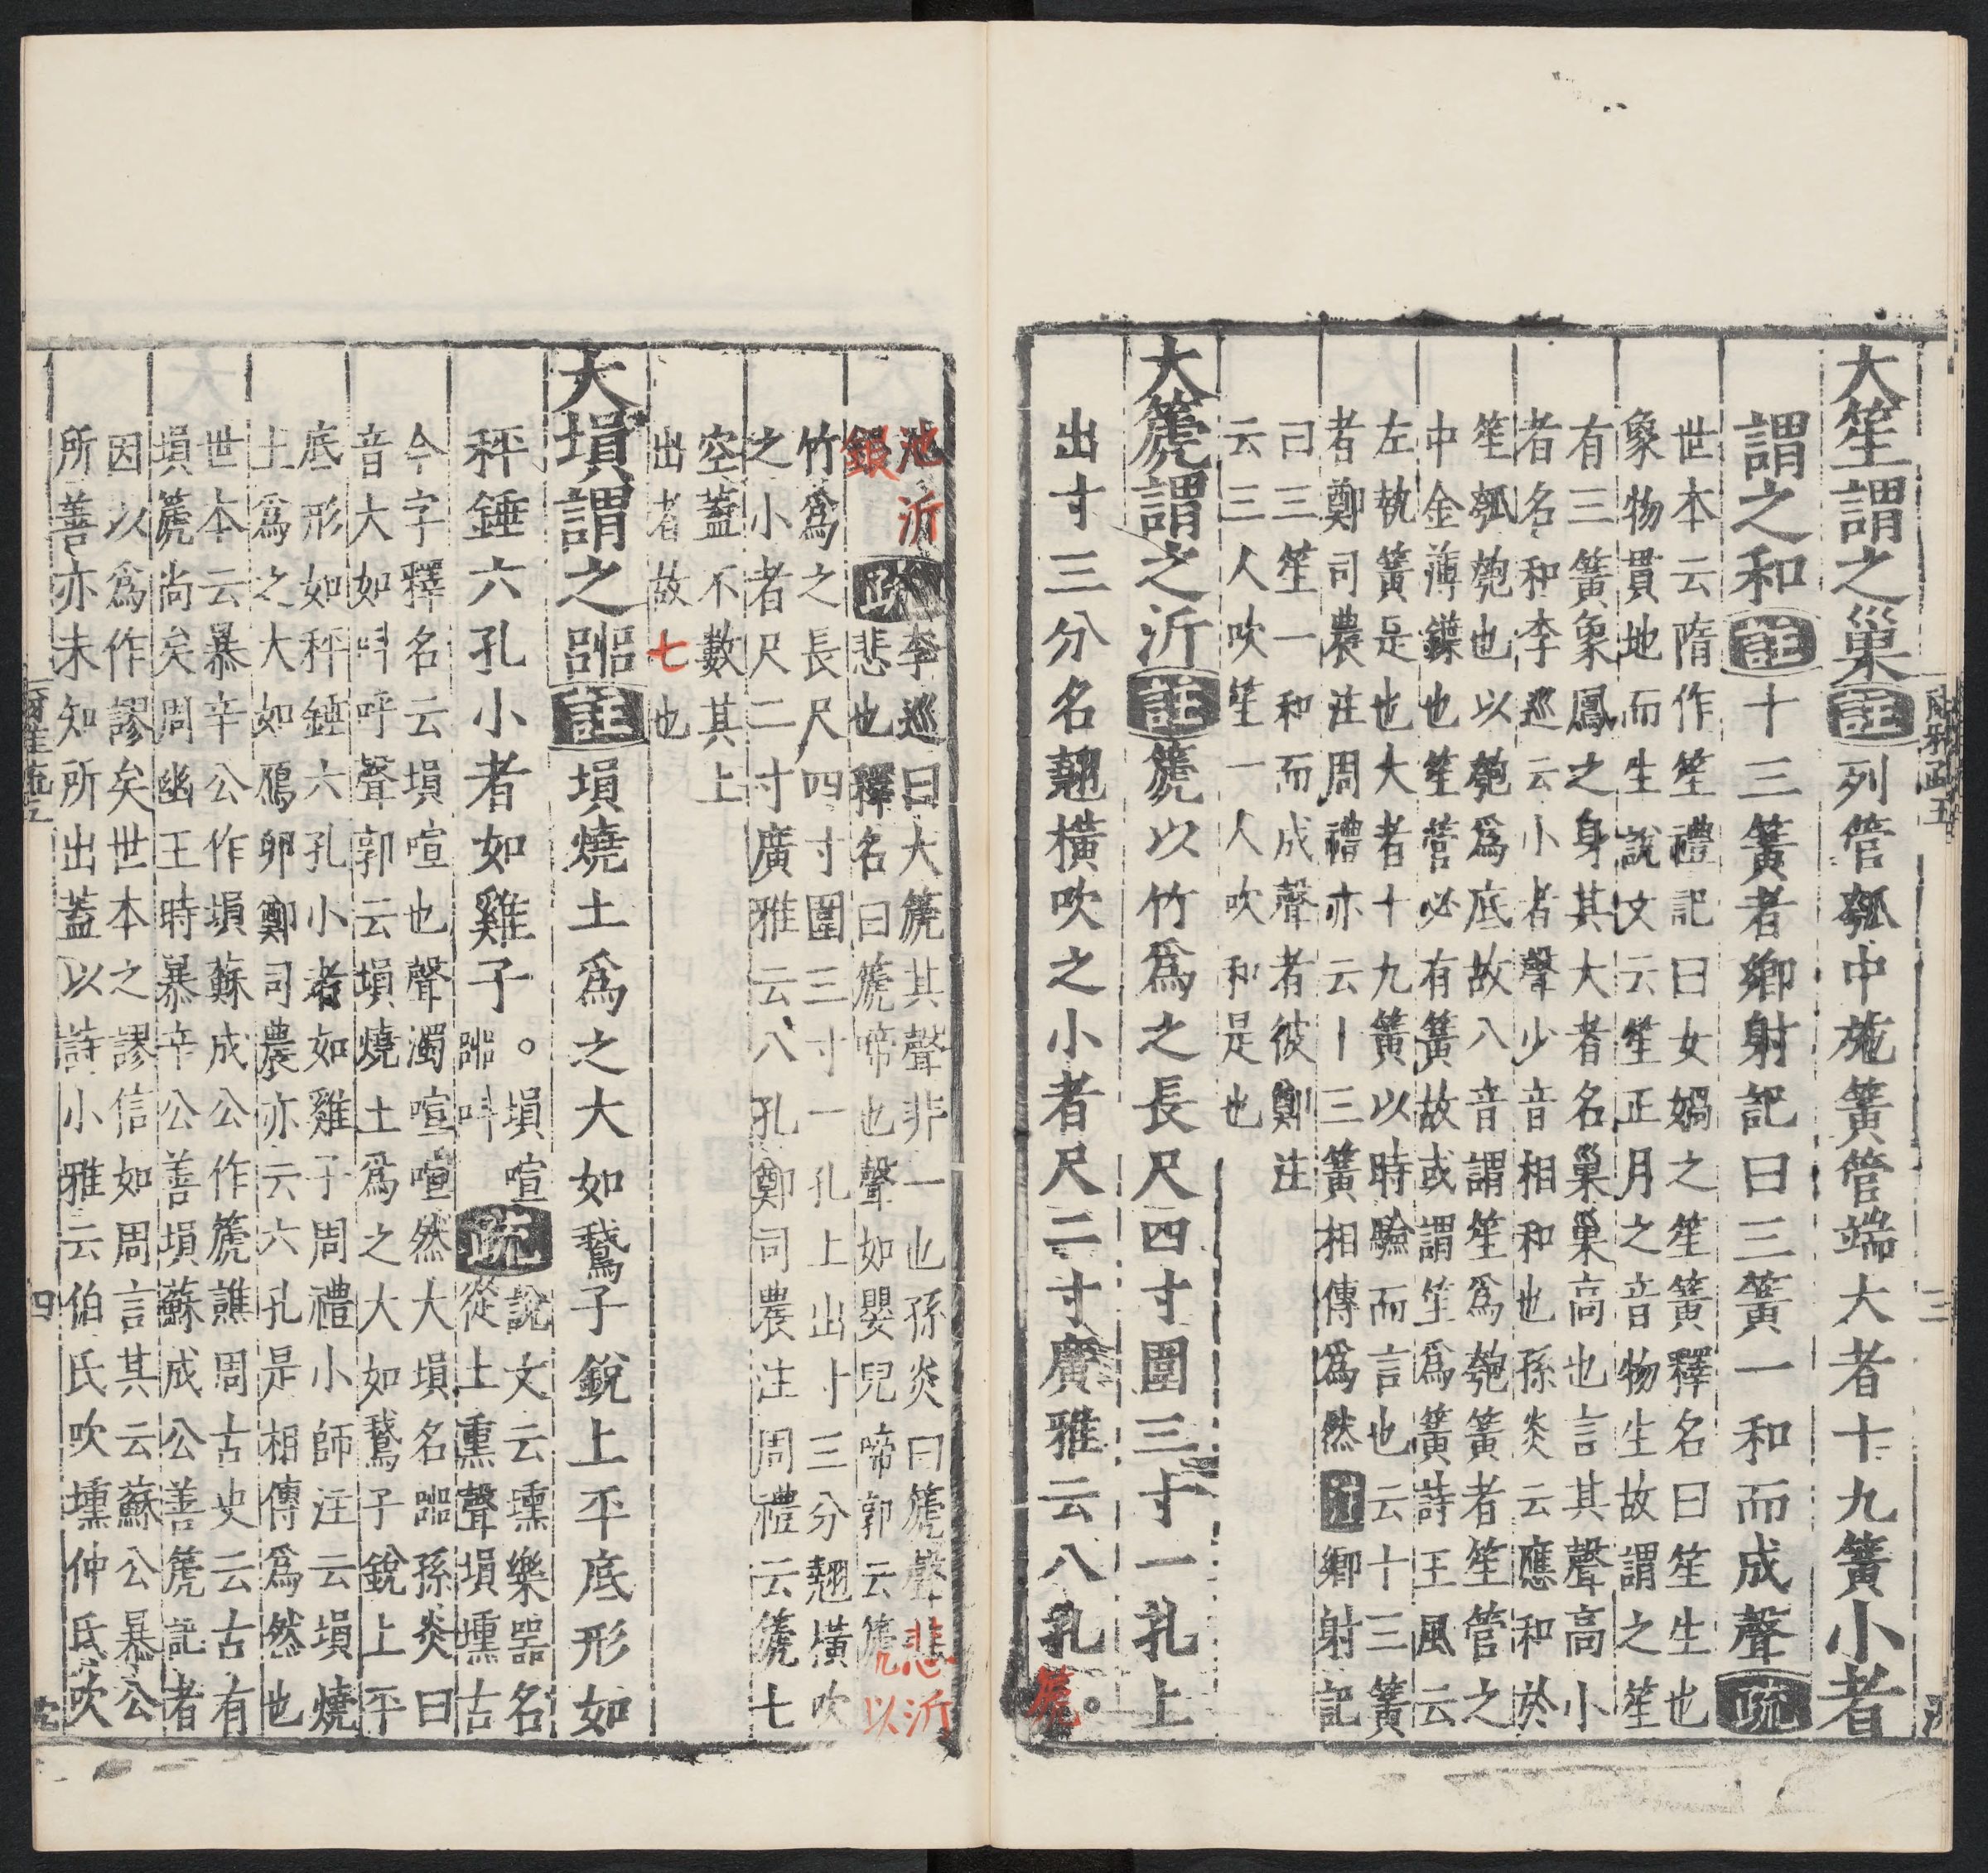 大笙謂之巢註列管瓠中施簧管端大者十九簧小者
謂之和註十三簧者鄉射記曰三簧一和而成聲疏
世本云隋作笙禮記曰女媧之笙簧釋名曰笙生也
象物貫地而生說文云笙正月之音物生故謂之笙
有三簧象鳳之身其大者名巢巢高也言其聲高小
者名和李巡云小者聲少音相和也孫炎云應和於
笙瓠匏也以匏爲底故八音謂笙爲匏簧者笙管之
中金薄鐷也笙管必有簧故或謂笙爲簧詩王風云
左執簧是也大者十九簧以時驗而言也云十三簧
者鄭司農注周禮亦云十三簧相傳爲然云鄉射記
曰三笙一和而成聲者彼鄭注
云三人吹笙一人吹和是也
大篪謂之沂註篪以竹爲之長尺四寸圍三寸一孔上
出寸三分名翹橫吹之小者尺二寸廣雅云八孔。篪
池沂
銀
疏李巡曰大篪其聲非一也孫炎曰篪聲悲沂
悲也釋名曰篪啼也聲如嬰兒啼郭云篪以
竹爲之長尺四寸圍三寸一孔上出寸三分翹橫吹
之小者尺二寸廣雅云八孔鄭司農注周禮云篪七
空蓋不數其上
出者故七也
大塤謂之嘂註塤燒土爲之大如鵞子銳上平底形如
秤錘六孔小者如雞子。塤喧
嘂叫
疏說文云壎樂器名
從土熏聲塤壎古
今字釋名云塤喧也聲濁喧喧然大塤名嘂孫炎曰
音大如叫呼聲郭云塤燒土爲之大如鵞子銳上平
底形如秤錘六孔小者如雞子周禮小師注云塤燒
土爲之大如鴈卵鄭司農亦云六孔是相傳爲然也
世本云暴辛公作塤蘇成公作篪譙周古史云古有
塤篪尚矣周幽王時暴辛公善塤蘇成公善篪記者
因以爲作謬矣世本之謬信如周言其云蘇公暴公
所善亦未知所出蓋以詩小雅云伯氏吹壎仲氏吹
四